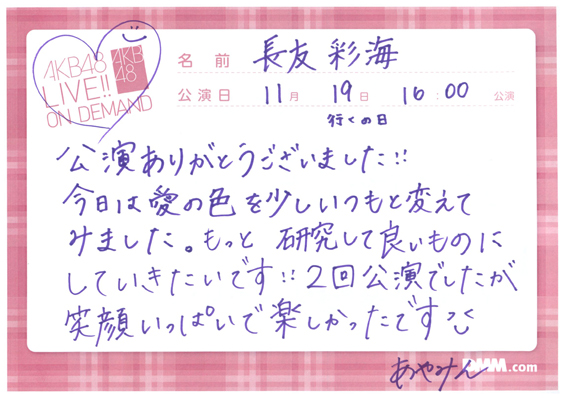 AKB48
LIVE!!
ON DEMAND
AKB
48
名前 長友 彩海
公演日 11月 19日 16:00 公演
行くの日
公演ありがとうございました!!
今日は愛の色を少しいつもと変えて
みました。もっと 研究して良いものに
していきたいです!! 2回公演でしたが
笑顔いっぱいで楽しかったです
あやみん
DMM.com